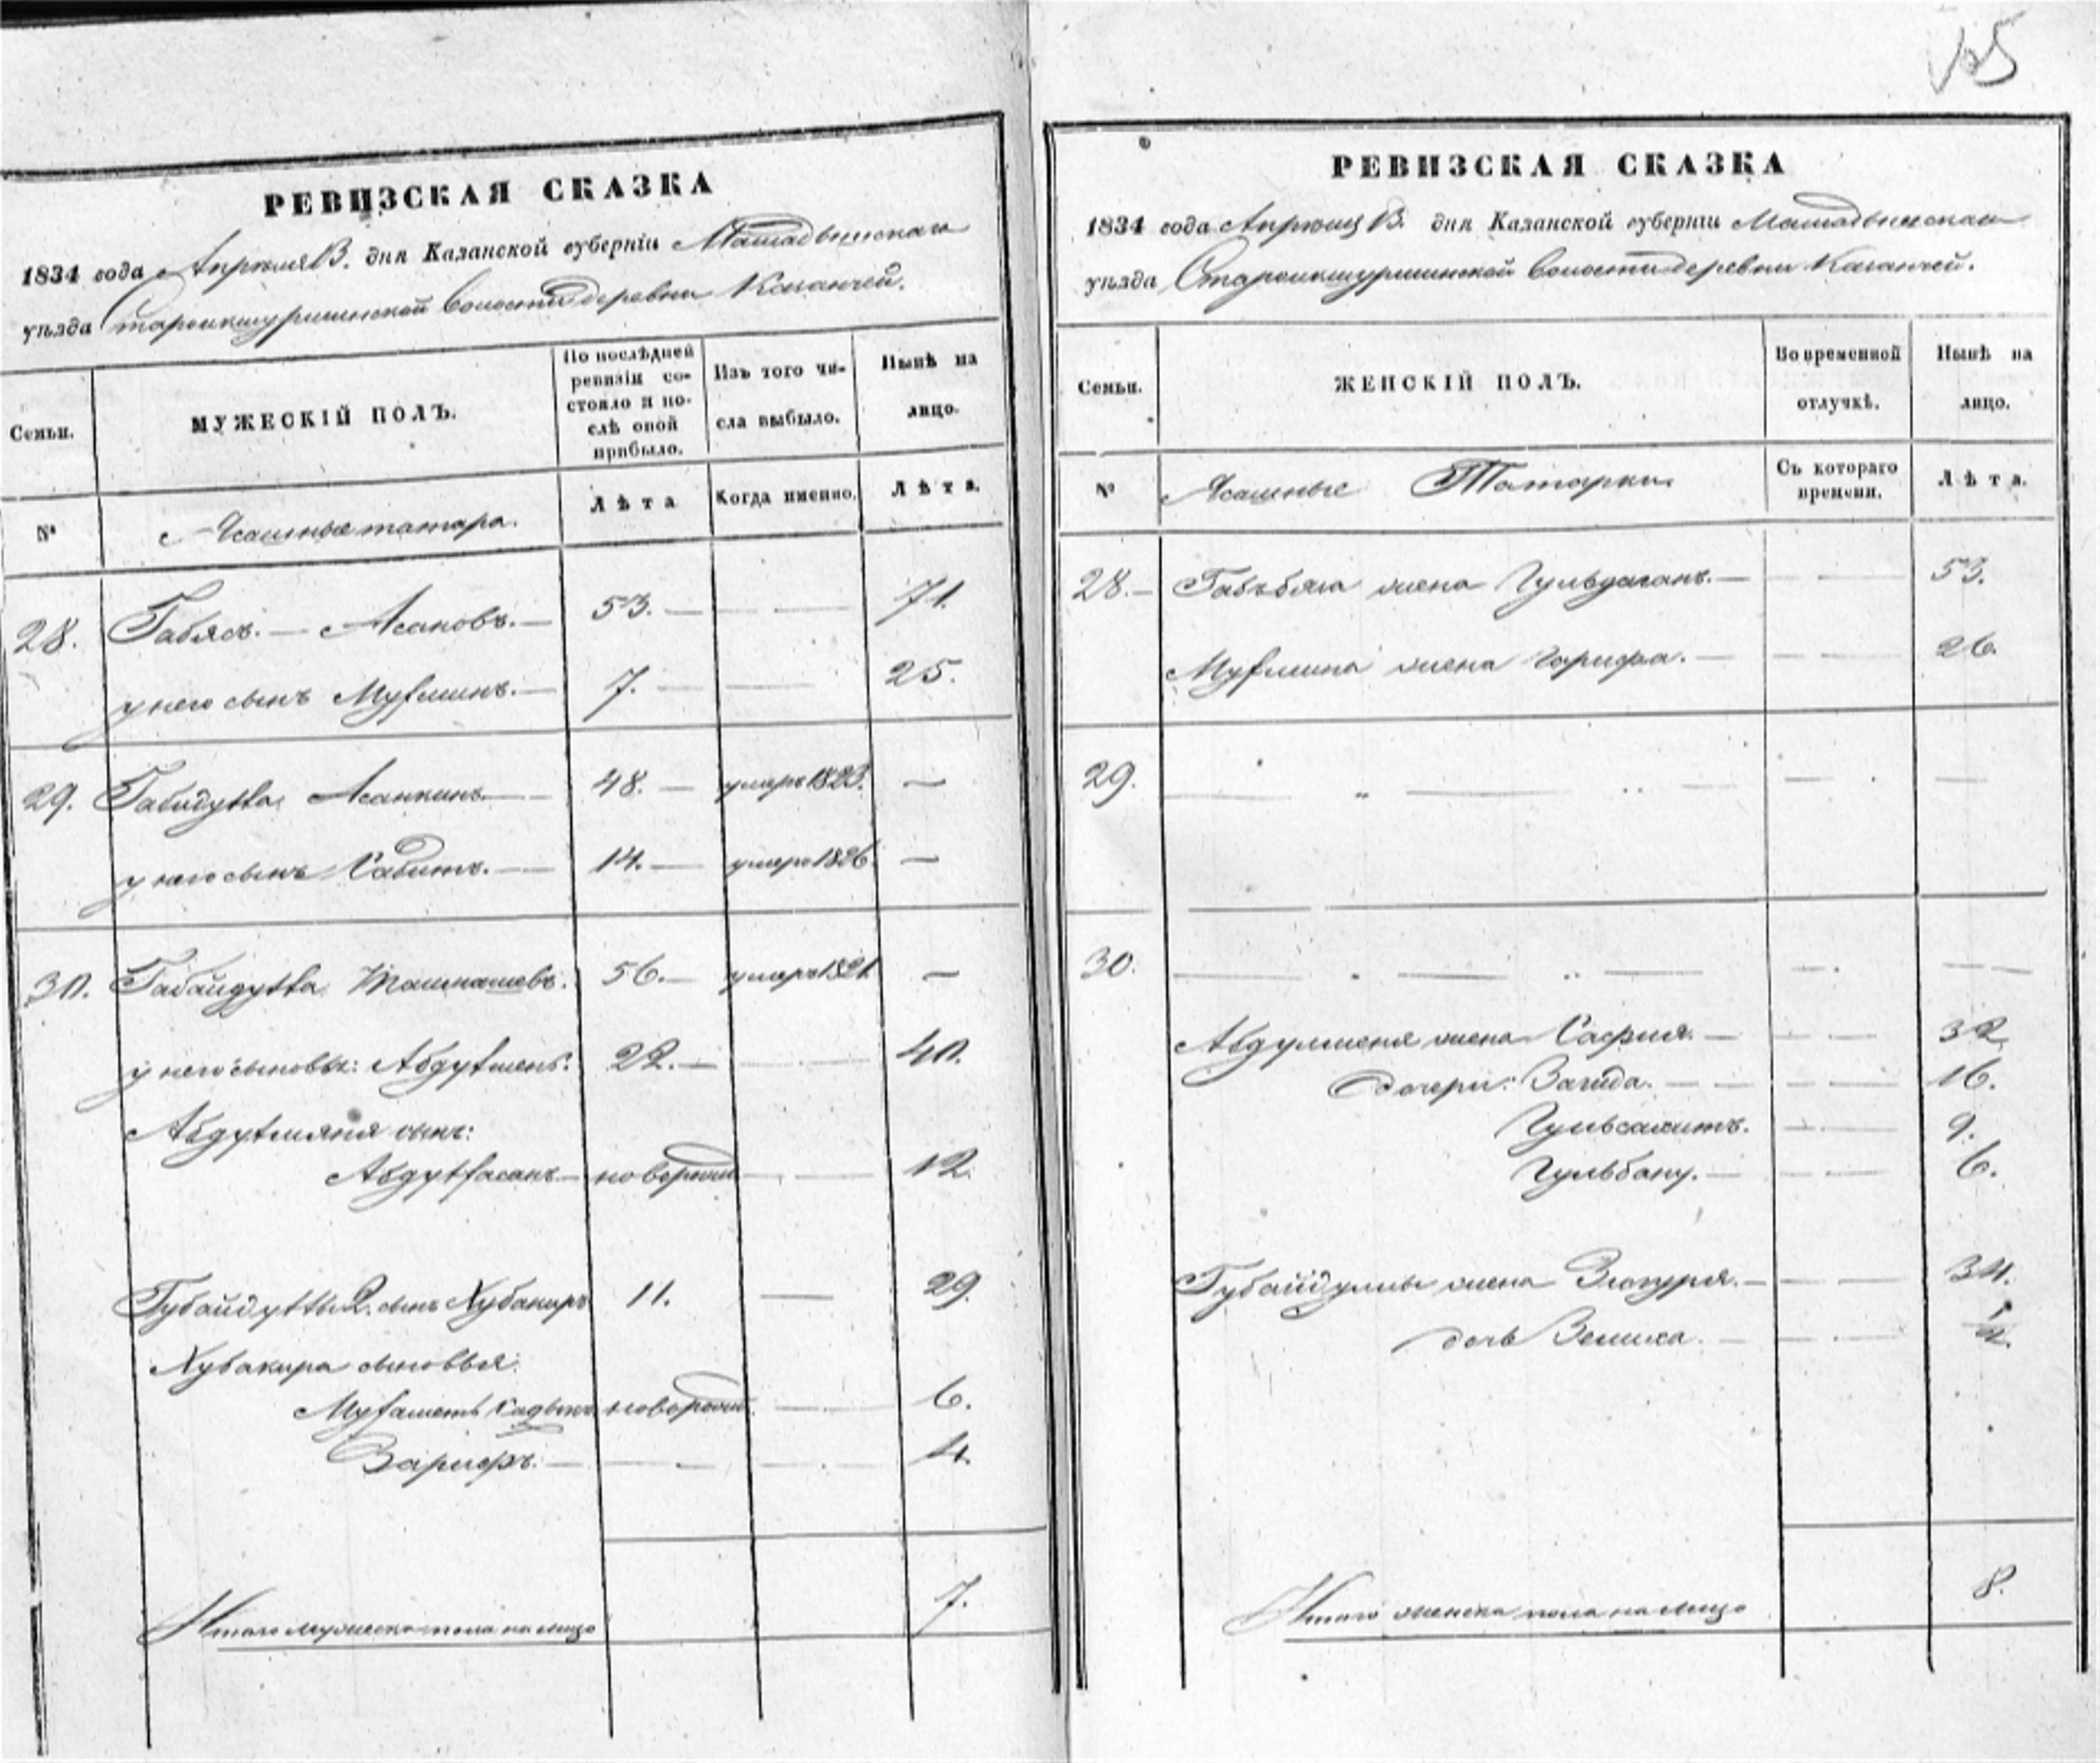 125
РЕВИЗСКАЯ СКАЗКА
1834 года Апреля дня Казанской губерніи Мамадышскаго
уѣзда Староикшурминской волости деревни Казанчей.
Семьи. МУЖЕСКІЙ ПОЛЪ. По послѣдней ревизіи состояло и послѣ оной прибыло. Изъ того числа выбыло. Нынѣ на лицо.
№ Ясашные татара. Лѣта Когда именно. Лѣта.
28. Габясъ. — Асановъ. — 53. — — 71.
у него сынъ Муслимъ. — 7. — — 25.
29. Габидулла Асанкинъ — 48. — умеръ 1823. —
у него сынъ Сабитъ. — 14. — умеръ 1826. —
30. Габайдулла Ташмашевъ. 56. — умеръ 1821. —
у него сыновья: Абдулменъ. 22. — — 40.
Абдулмяня сынъ:
Абдулхасанъ — новорожд — 12.
Губайдуллы 2. сынъ Хубакиръ 11. — 29.
Хубакира сыновья:
Мухаметь Садыкъ новорожд. — 6.
Зарифъ. — — — 4.
Итого мужеска пола на лицо 7.
РЕВИЗСКАЯ СКАЗКА
1834 года Апреля дня Казанской губерніи Мамадышскаго
уѣзда Староикшурминской волости деревни Казанчей.
Семьи. ЖЕНСКІЙ ПОЛЪ. Во временной отлучкѣ. Нынѣ на лицо.
№ Ясашные Татарки Съ котораго времени. Лѣта.
28. — жена — — 53.
Муслима жена Гарифа. — — 26.
29. — „ — „ — — —
30. — „ — „ — — —
Абдулменя жена Сафия. — — 32.
дочери: Загида. — — 16.
— 9.
Гульбану. — — 6.
Губайдуллы жена Зюгуря. — — 34.
дочь Зелиха. — — ½.
Итого женска пола на лицо 8.